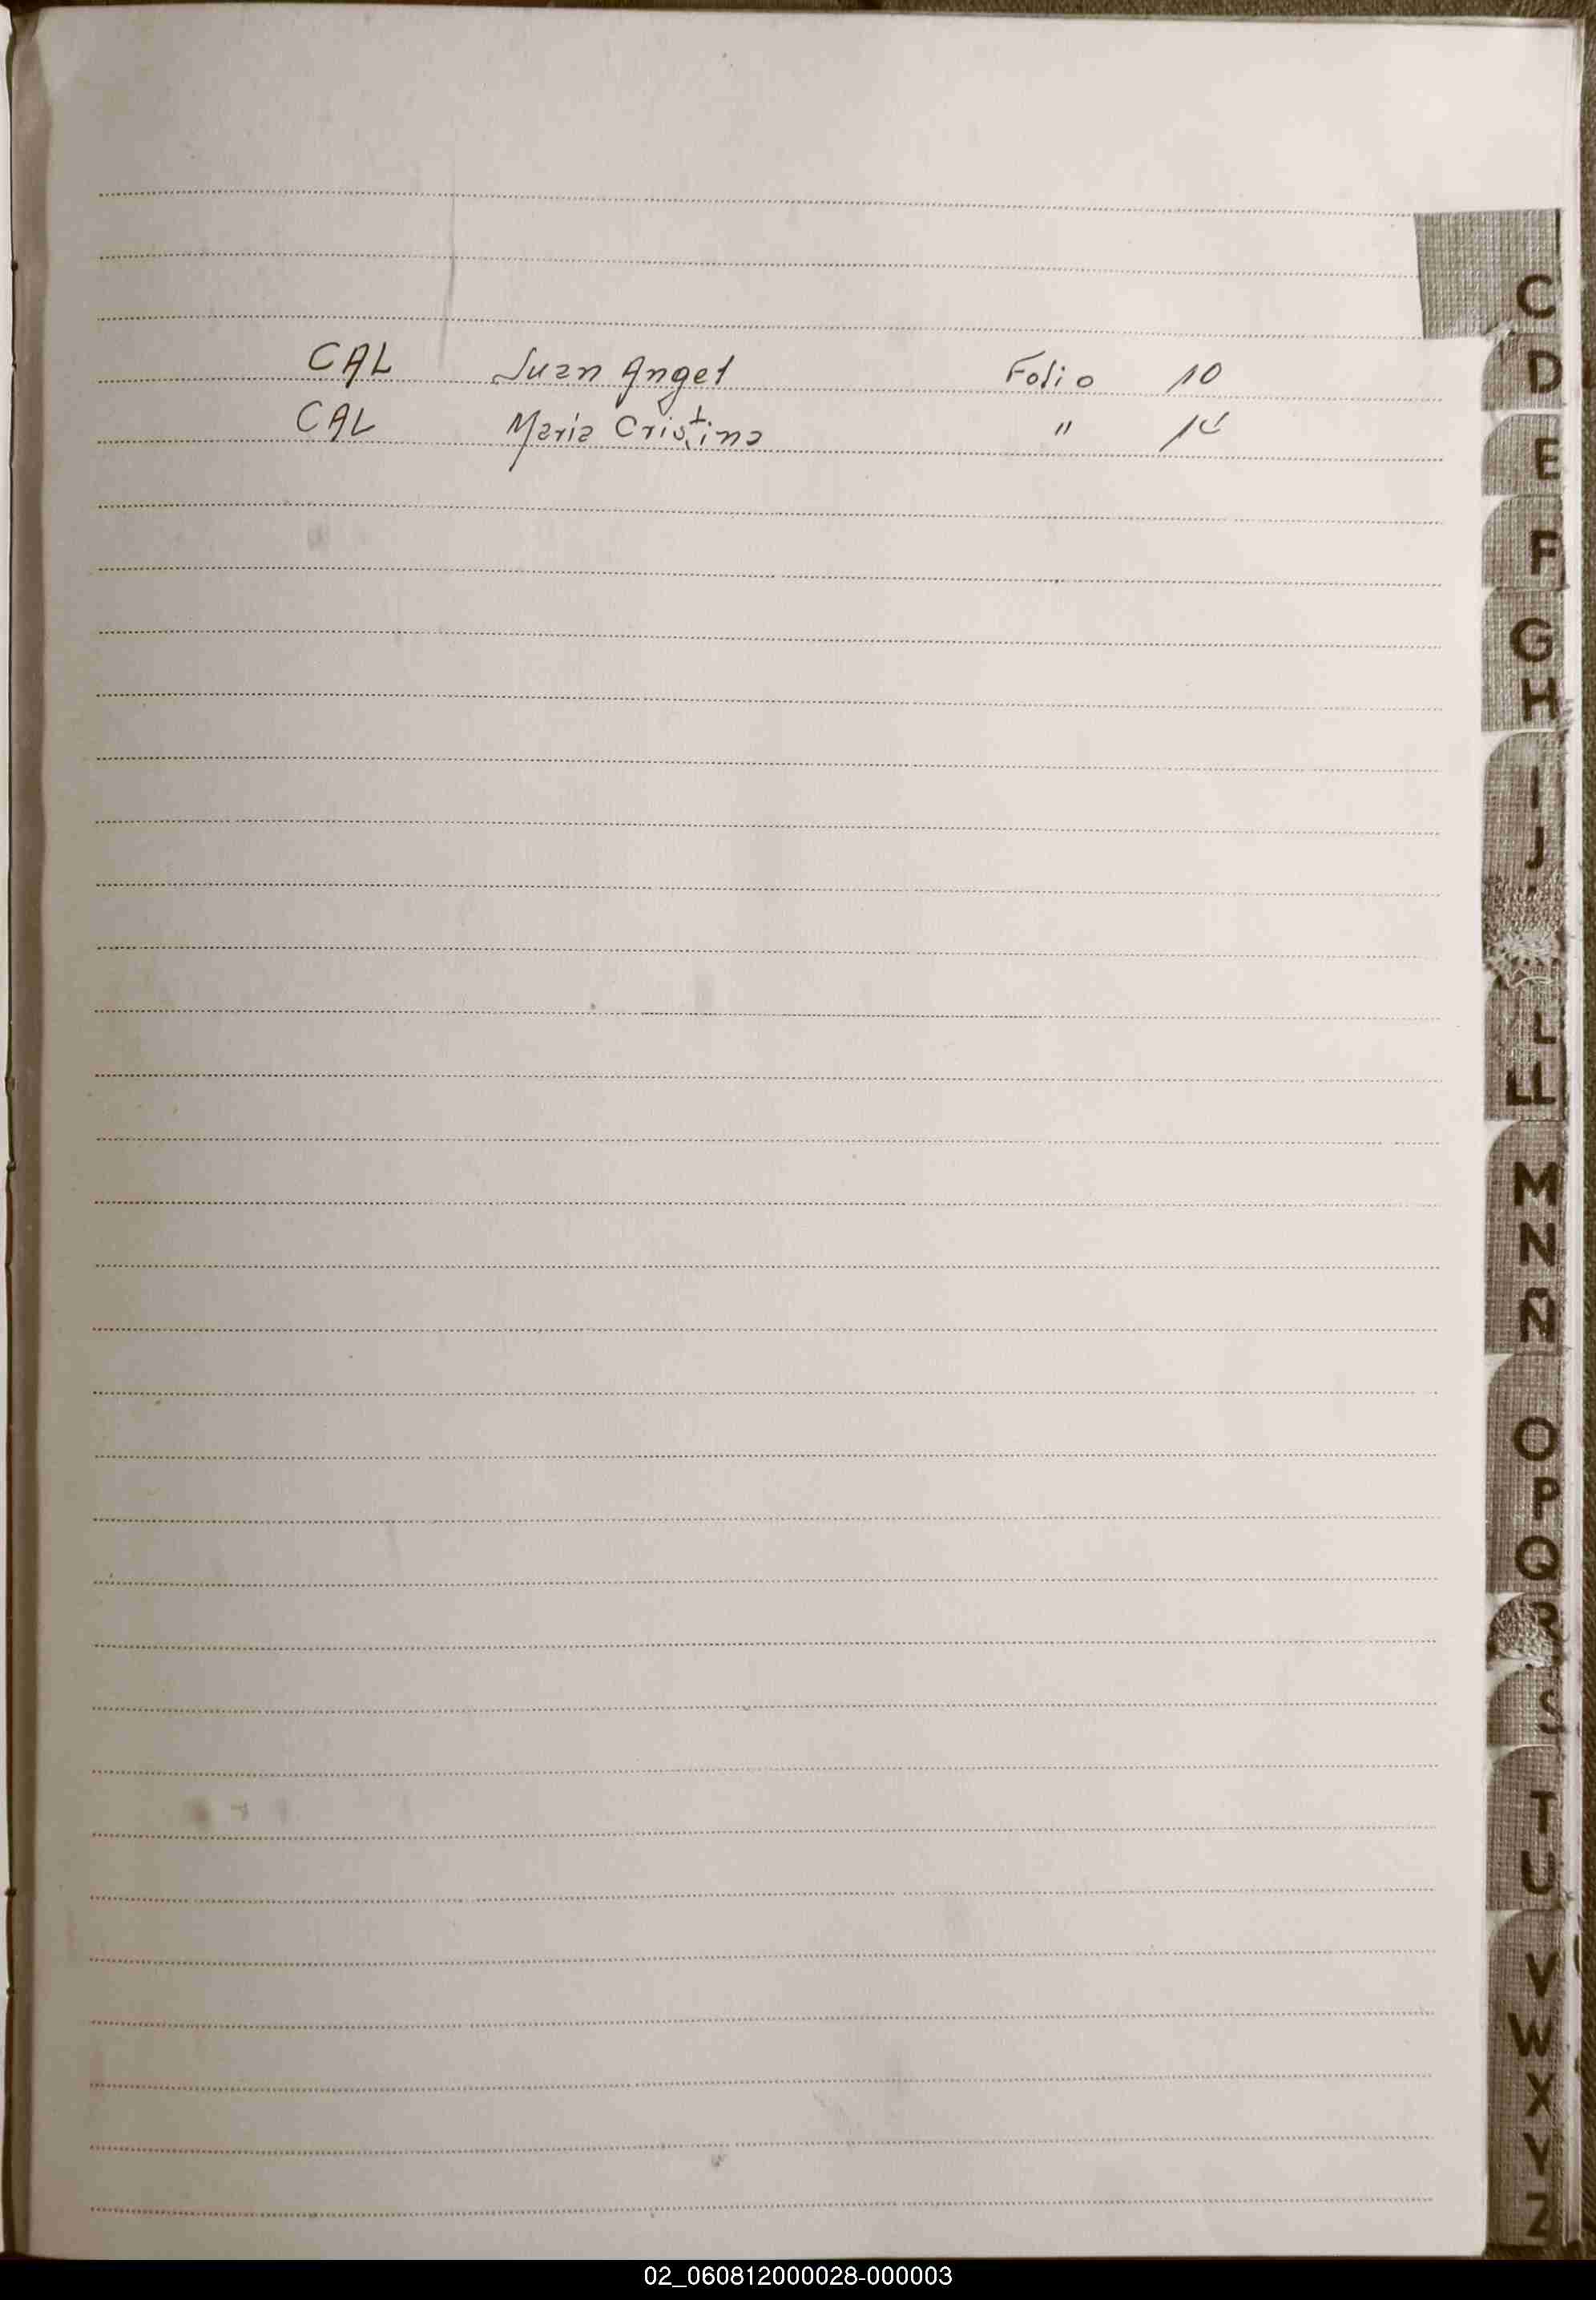 CAL Juan Angel Folio 10
CAL Maria Cristina "
C
D
E
F
G
H
I
J
L
LL
M
N
Ñ
O
P
Q
R
S
T
U
V
W
X
Y
Z
02_060812000028-000003